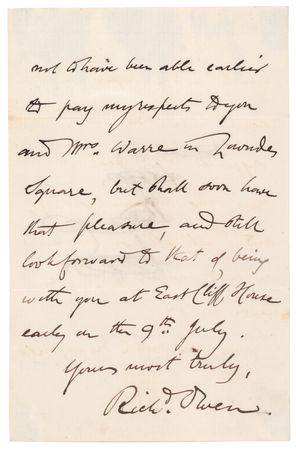 not to have been able earlier
to pay my respects to you
and Mrs. Warre in Lowndes
Square, but shall soon have
that pleasure, and still
look forward to that of being
with you at East Cliff House
early on the 9th. July.
Yours most truly,
Richd. Owen.